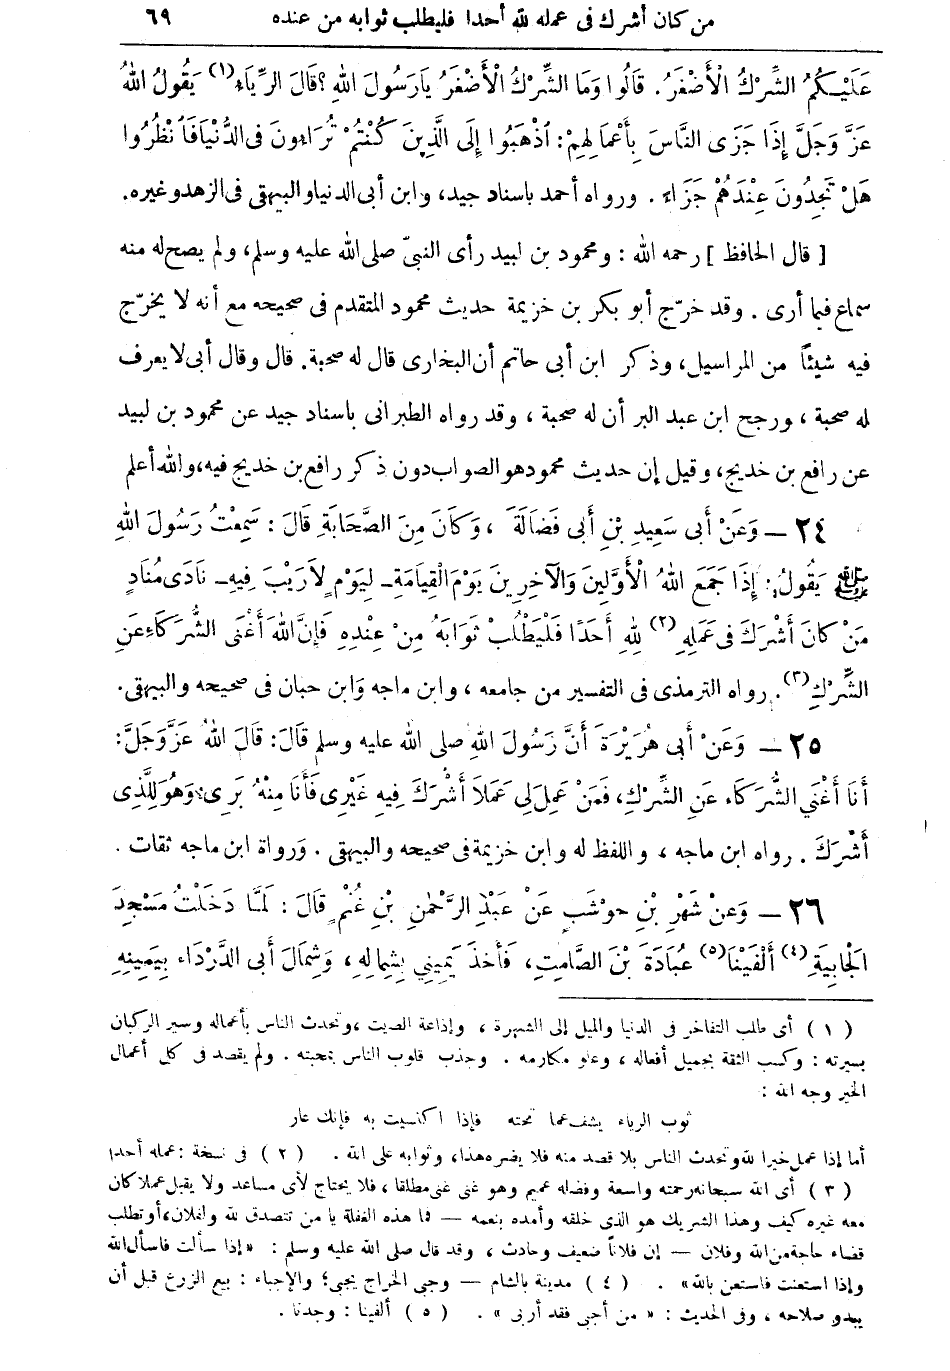 من كان أشرك فى عمله لله أحدا فليطلب ثوابه من عنده ٦٩
عَلَيْكُمُ الشِّرْكُ الْأَصْغَرُ. قَالُوا وَمَا الشِّرْكُ الْأَصْغَرُ يَارَسُولَ اللهِ؟ قَالَ الرِّيَاءُ (١) يَقُولُ اللهُ
عَزَّ وَجَلَّ إِذَا جَزَى النَّاسَ بِأَعْمَالِهِمْ: اذْهَبُوا إِلَى الَّذِينَ كُنْتُمْ تُرَاءُونَ فِى الدُّنْيَا فَانْظُرُوا
هَلْ تَجِدُونَ عِنْدَهُمْ جَزَاءً . ورواه أحمد باسناد جيد، وابن أبى الدنيا والبيهقى فى الزهد وغيره.
[ قال الحافظ ] رحمه الله : ومحمود بن لبيد رأى النبىّ صلى الله عليه وسلم، ولم يصح له منه
سماع فيما أرى . وقد خرّج أبو بكر بن خزيمة حديث محمود المتقدم فى صحيحه مع أنه لا يخرّج
فيه شيئاً من المراسيل، وذكر ابن أبى حاتم أن البخارى قال له صحبة. قال وقال أبى لا يعرف
له صحبة ، ورجح ابن عبد البر أن له صحبة ، وقد رواه الطبرانى باسناد جيد عن محمود بن لبيد
عن رافع بن خديج، وقيل إن حديث محمود هو الصواب دون ذكر رافع بن خديج فيه، والله أعلم
٢٤ — وَعَنْ أَبى سَعِيدِ بْنِ أَبى فَضَالَةَ ، وَكَانَ مِنَ الصَّحَابَةِ قَالَ : سَمِعْتُ رَسُولَ اللهِ
ﷺ يَقُولُ: إِذَا جَمَعَ اللهُ الْأَوَّلِينَ وَالْآخِرِينَ يَوْمَ الْقِيَامَةِ - لِيَوْمٍ لاَرَيْبَ فِيهِ - نَادَى مُنَادٍ
مَنْ كَانَ أَشْرَكَ فى عَمَلِهِ (٢) لِلهِ أَحَدًا فَلْيَطْلُبْ ثَوَابَهُ مِنْ عِنْدِهِ فَإِنَّ اللهَ أَغْنَى الشُّرَكَاءِ عَنِ
الشِّرْكِ (٣). رواه الترمذى فى التفسير من جامعه ، وابن ماجه وَابن حبان فى صحيحه والبيهقى.
٢٥ — وَعَنْ أَبى هُرَيْرَةَ أَنَّ رَسُولَ اللهِ صلى الله عليه وسلم قَالَ: قَالَ اللهُ عَزَّ وَجَلَّ:
أَنَا أَغْنَى الشُّرَكَاءِ عَنِ الشِّرْكِ، فَمَنْ عَمِلَ لِى عَمَلاً أَشْرَكَ فِيهِ غَيْرِى فَأَنَا مِنْهُ بَرِىءٌ وَهُوَ لِلَّذِى
أَشْرَكَ . رواه ابن ماجه ، واللفظ له وابن خزيمة فى صحيحه والبيهقى . وَرواة ابن ماجه ثقات .
٢٦ — وَعَنْ شَهْرِ بْنِ حَوْشَبٍ عَنْ عَبْدِ الرَّحْمٰنِ بْنِ غُنْمٍ قَالَ : لَمَّا دَخَلْتُ مَسْجِدَ
الْجَابِيَةِ (٤) أَلْفَيْنَا (٥) عُبَادَةَ بْنَ الصَّامِتِ، فَأَخَذَ يَمِينِى بِشِمَالِهِ، وَشِمَالَ أَبى الدَّرْدَاءِ بِيَمِينِهِ
(١) أى طلب التفاخر فى الدنيا والميل إلى الشهرة ، وإذاعة الصيت ، وتحدث الناس بأعماله وسير الركبان
بسيرته : وكسب الثقة بجميل أفعاله ، وعلو مكارمه . وجذب قلوب الناس بمحبته . ولم يقصد فى كل أعمال
الخير وجه الله :
ثوب الرياء يشف عما تحته فإذا اكتسيت به فإنك عار
أما إذا عمل خيرا لله وتحدث الناس بلا قصد منه فلا يضره هذا، وثوابه على الله . (٢) فى نسخة : عمله أحدا
(٣) أى الله سبحانه رحمته واسعة وفضله عميم وهو غنى غنى مطلقا ، فلا يحتاج لأى مساعد ولا يقبل عملا كان
معه غيره كيف وهذا الشريك هو الذى خلقه وأمده بنعمه — فما هذه الغفلة يا من تتصدق لله ولفلان، أو تطلب
قضاء حاجة من الله وفلان — إن فلاناً ضعيف وحادث ، وقد قال صلى الله عليه وسلم : «إذا سألت فاسأل الله
وإذا استعنت فاستعن بالله» . (٤) مدينة بالشام — وجبى الخراج يجبى؛ والإجباء : بيع الزرع قبل أن
يبدو صلاحه ، وفى الحديث : « من أجبى فقد أربى » . (٥) ألفينا : وجدنا .